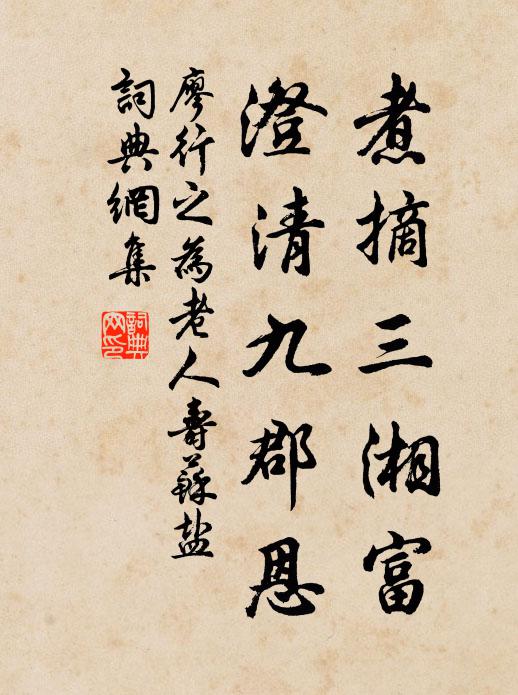 煮摘三湘富
澄清九郡恩
廖行之為老人壽蘇盐
詞典網集
詞典网印